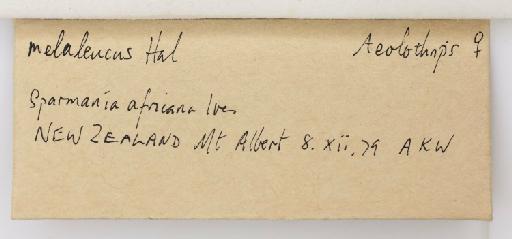 melaleucus Hal Aeolothrips ♀
Sparmania africana lves
NEW ZEALAND Mt Albert 8.xii.79 AKW